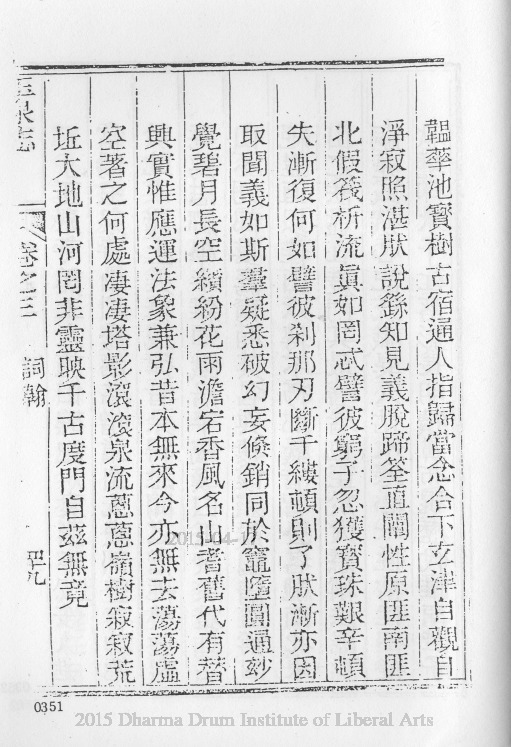 韞華池寶樹古宿通人指歸當念合下玄津自觀自
淨寂照湛肰說繇知見義脫蹄筌直闡性原匪南匪
北假筏析流眞如罔忒譬彼窮子忽獲寳珠艱辛頓
失漸復何如譬彼剎那刃斷千縷頓則了肰漸亦因
取聞義如斯羣疑悉破幻妄倏銷同於竈墮圓通玅
覺碧月長空繽紛花雨澹宕香風名山耆舊代有替
興實惟應運法象兼弘昔本無來今亦無去蕩蕩虛
空著之何處凄凄塔影滾滾泉流蔥蔥嶺樹寂寂荒
坵大地山河罔非靈映千古度門自茲無竟
玉泉志 卷之三 詞翰 四九
2015-04-17
0351
2015 Dharma Drum Institute of Liberal Arts